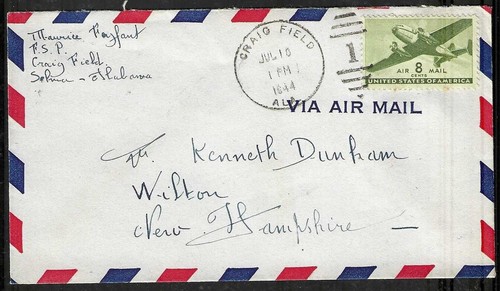 Maurice
F.S.P.
Craig Field
Selma - Alabama
CRAIG FIELD
JUL 10
1 PM
1944
ALA.
1
AIR 8 MAIL
CENTS
UNITED STATES OF AMERICA
VIA AIR MAIL
Mr. Kenneth Dunham
Wilton
New Hampshire -